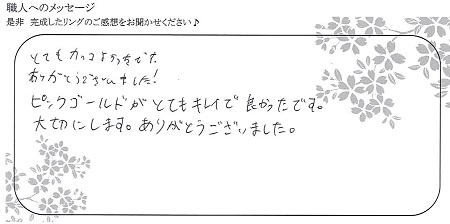 職人へのメッセージ
是非 完成したリングのご感想をお聞かせください♪
とてもカッコよかったです。
ありがとうございました!
ピンクゴールドがとてもキレイで良かったです。
大切にします。ありがとうございました。